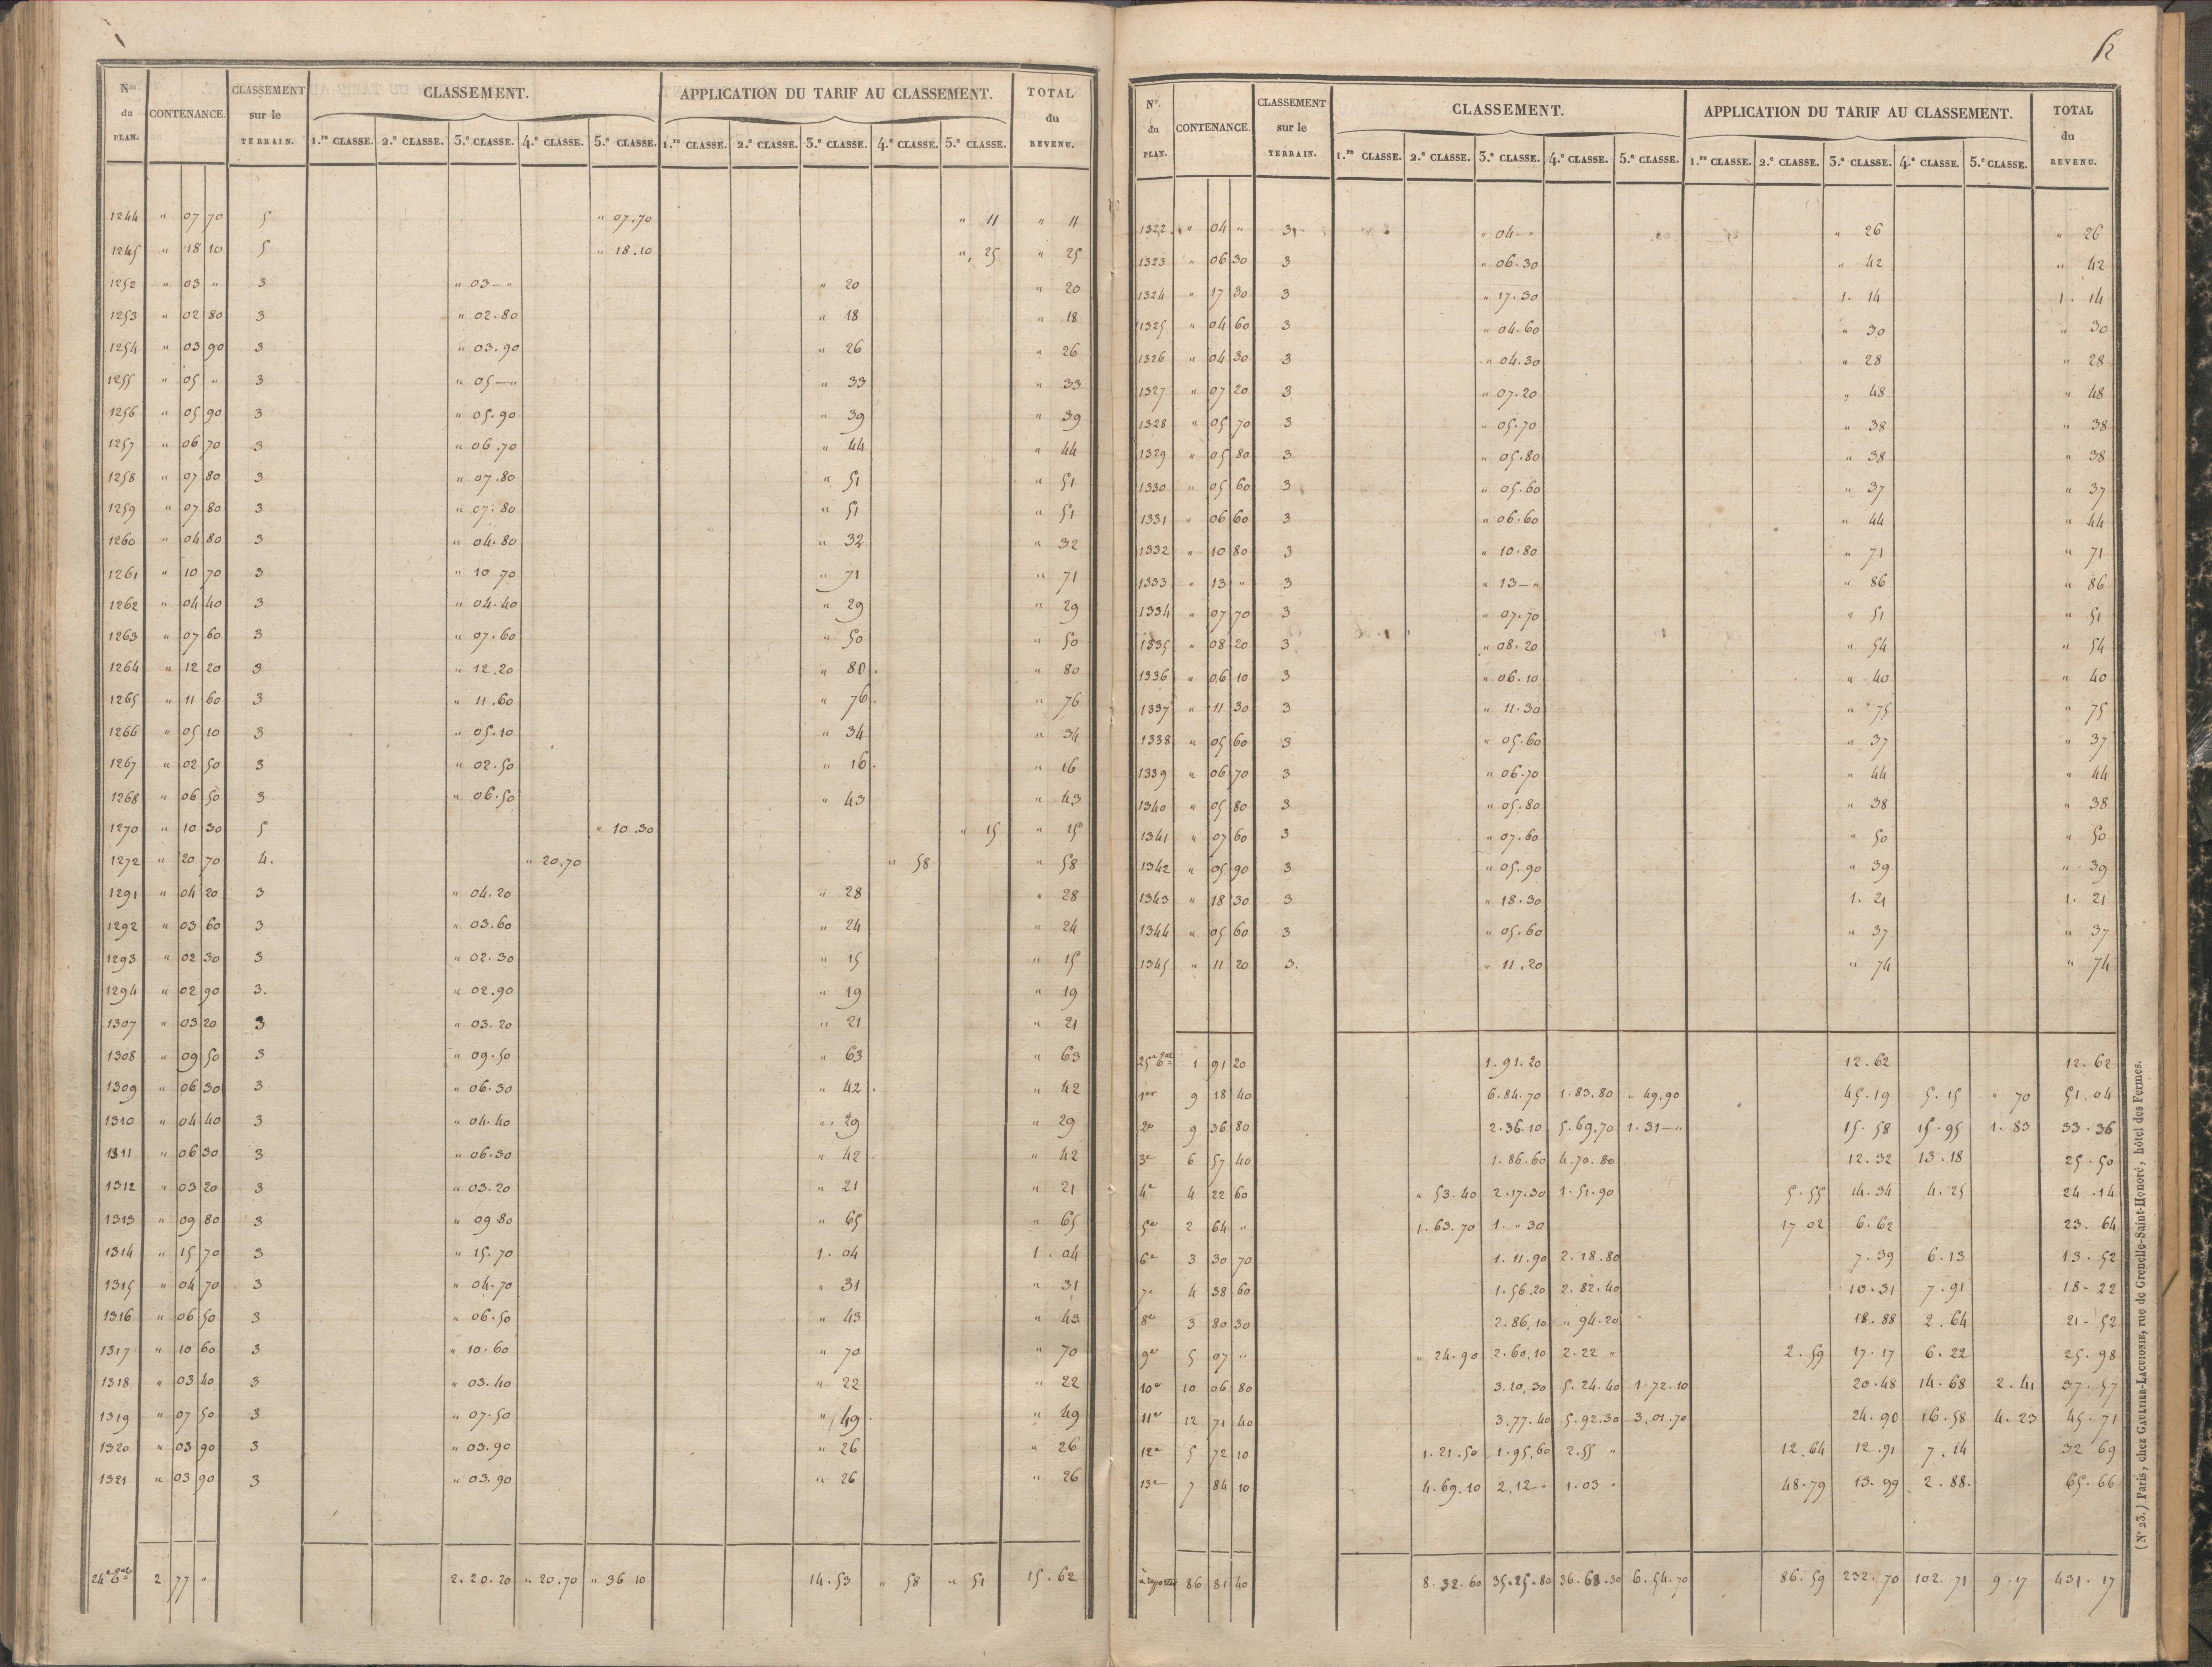 h
Nos du PLAN. CONTENANCE. CLASSEMENT sur le TERRAIN. CLASSEMENT. APPLICATION DU TARIF AU CLASSEMENT. TOTAL du REVENU.
1.re CLASSE. 2.e CLASSE. 3.e CLASSE. 4.e CLASSE. 5.e CLASSE. 1.re CLASSE. 2.e CLASSE. 3.e CLASSE. 4.e CLASSE. 5.e CLASSE.
1244 " 07 70 5 " 07.70 " 11 " 11
1245 " 18 10 5 " 18.10 " 25 " 25
1252 " 03 " 3 " 03—" " 20 " 20
1253 " 02 80 3 " 02.80 " 18 " 18
1254 " 03 90 3 " 03.90 " 26 " 26
1255 " 05 " 3 " 05—" " 33 " 33
1256 " 05 90 3 " 05.90 " 39 " 39
1257 " 06 70 3 " 06.70 " 44 " 44
1258 " 07 80 3 " 07.80 " 51 " 51
1259 " 07 80 3 " 07.80 " 51 " 51
1260 " 04 80 3 " 04.80 " 32 " 32
1261 " 10 70 3 " 10 70 " 71 " 71
1262 " 04 40 3 " 04.40 " 29 " 29
1263 " 07 60 3 " 07.60 " 50 " 50
1264 " 12 20 3 " 12.20 " 80. " 80
1265 " 11 60 3 " 11.60 " 76. " 76
1266 " 05 10 3 " 05.10 " 34 " 34
1267 " 02 50 3 " 02.50 " 16. " 16
1268 " 06 50 3 " 06.50 " 43 " 43
1270 " 10 30 5 " 10.30 " 15 " 15
1272 " 20 70 4. " 20.70 " 58 " 58
1291 " 04 20 3 " 04.20 " 28 " 28
1292 " 03 60 3 " 03.60 " 24 " 24
1293 " 02 30 3 " 02.30 " 15 " 15
1294 " 02 90 3. " 02.90 " 19 " 19
1307 " 03 20 3 " 03.20 " 21 " 21
1308 " 09 50 3 " 09.50 " 63 " 63
1309 " 06 30 3 " 06.30 " 42. " 42
1310 " 04 40 3 " 04.40 " 29 " 29
1311 " 06 30 3 " 06.30 " 42 " 42
1312 " 03 20 3 " 03.20 " 21 " 21
1313 " 09 80 3 " 09 80 " 65 " 65
1314 " 15 70 3 " 15.70 1. 04 1. 04
1315 " 04 70 3 " 04.70 " 31 " 31
1316 " 06 50 3 " 06.50 " 43 " 43
1317 " 10 60 3 " 10.60 " 70 " 70
1318 " 03 40 3 " 03.40 " 22 " 22
1319 " 07 50 3 " 07.50 " 49. " 49
1320 " 03 90 3 " 03.90 " 26 " 26
1321 " 03 90 3 " 03.90 " 26 " 26
24e 2 77 " 2.20.20 " 20.70 " 36 10 14.53 " 58 " 51 15.62
Nos. du PLAN. CONTENANCE. CLASSEMENT sur le TERRAIN. CLASSEMENT. APPLICATION DU TARIF AU CLASSEMENT. TOTAL du REVENU.
1.re CLASSE. 2.e CLASSE. 3.e CLASSE. 4.e CLASSE. 5.e CLASSE. 1.re CLASSE. 2.e CLASSE. 3.e CLASSE. 4.e CLASSE. 5.e CLASSE.
1322 " 04 " 3 " 04—" " 26 " 26
1323 " 06 30 3 " 06.30 " 42 " 42
1324 " 17 30 3 " 17.30 1. 14 1. 14
1325 " 04 60 3 " 04.60 " 30 " 30
1326 " 04 30 3 " 04.30 " 28 " 28
1327 " 07 20 3 " 07.20 " 48 " 48
1328 " 05 70 3 " 05.70 " 38 " 38
1329 " 05 80 3 " 05.80 " 38 " 38
1330 " 05 60 3 " 05.60 " 37 " 37
1331 " 06 60 3 " 06.60 " 44 " 44
1332 " 10 80 3 " 10.80 " 71 " 71
1333 " 13 " 3 " 13—" " 86 " 86
1334 " 07 70 3 " 07.70 " 51 " 51
1335 " 08 20 3 " 08.20 " 54 " 54
1336 " 06 10 3 " 06.10 " 40 " 40
1337 " 11 30 3 " 11.30 " 75 " 75
1338 " 05 60 3 " 05.60 " 37 " 37
1339 " 06 70 3 " 06.70 " 44 " 44
1340 " 05 80 3 " 05.80 " 38 " 38
1341 " 07 60 3 " 07.60 " 50 " 50
1342 " 05 90 3 " 05.90 " 39 " 39
1343 " 18 30 3 " 18.30 1. 21 1. 21
1344 " 05 60 3 " 05.60 " 37 " 37
1345 " 11 20 3. " 11.20 " 74 " 74
25e 1 91 20 1.91.20 12.62 12.62
1er 9 18 40 6.84.70 1.83.80 " 49.90 45.19 5.15 " 70 51.04
2e 9 36 80 2.36.10 5.69.70 1.31—" 15.58 15.95 1.83 33.36
3e 6 57 40 1.86.60 4.70.80 12.32 13.18 25.50
4e 4 22 60 " 53.40 2.17.30 1.51.90 5.55 14.34 4.25 24.14
5e 2 64 " 1.63.70 1. " 30 17 02 6.62 23. 64
6e 3 30 70 1.11.90 2.18.80 7.39 6.13 13.52
7e 4 38 60 1.56.20 2.82.40 10.31 7.91 18-22
8e 3 80 30 2.86.10 " 94.20 18.88 2.64 21-52
9e 5 07 " " 24.90 2.60.10 2.22 " 2.59 17.17 6.22 25.98
10e 10 06 80 3.10.30 5.24.40 1.72.10 20.48 14.68 2.41 37.57
11e 12 71 40 3.77.40 5.92.30 3.01.70 24.90 16.58 4.23 45.71
12e 5 72 10 1.21.50 1.95.60 2.55 " 12.64 12.91 7.14 32 69
13e 7 84 10 4.69.10 2.12 " 1.03 " 48.79 13.99 2.88. 65.66
à reporter 86 81 40 8.32.60 35.25.80 36.68.30 6.54.70 86.59 232.70 102.71 9.17 431.17
(N° 23.) Paris, chez GAULTIER-LAGUIONIE, rue de Grenelle-Saint-Honoré, hôtel des Fermes.